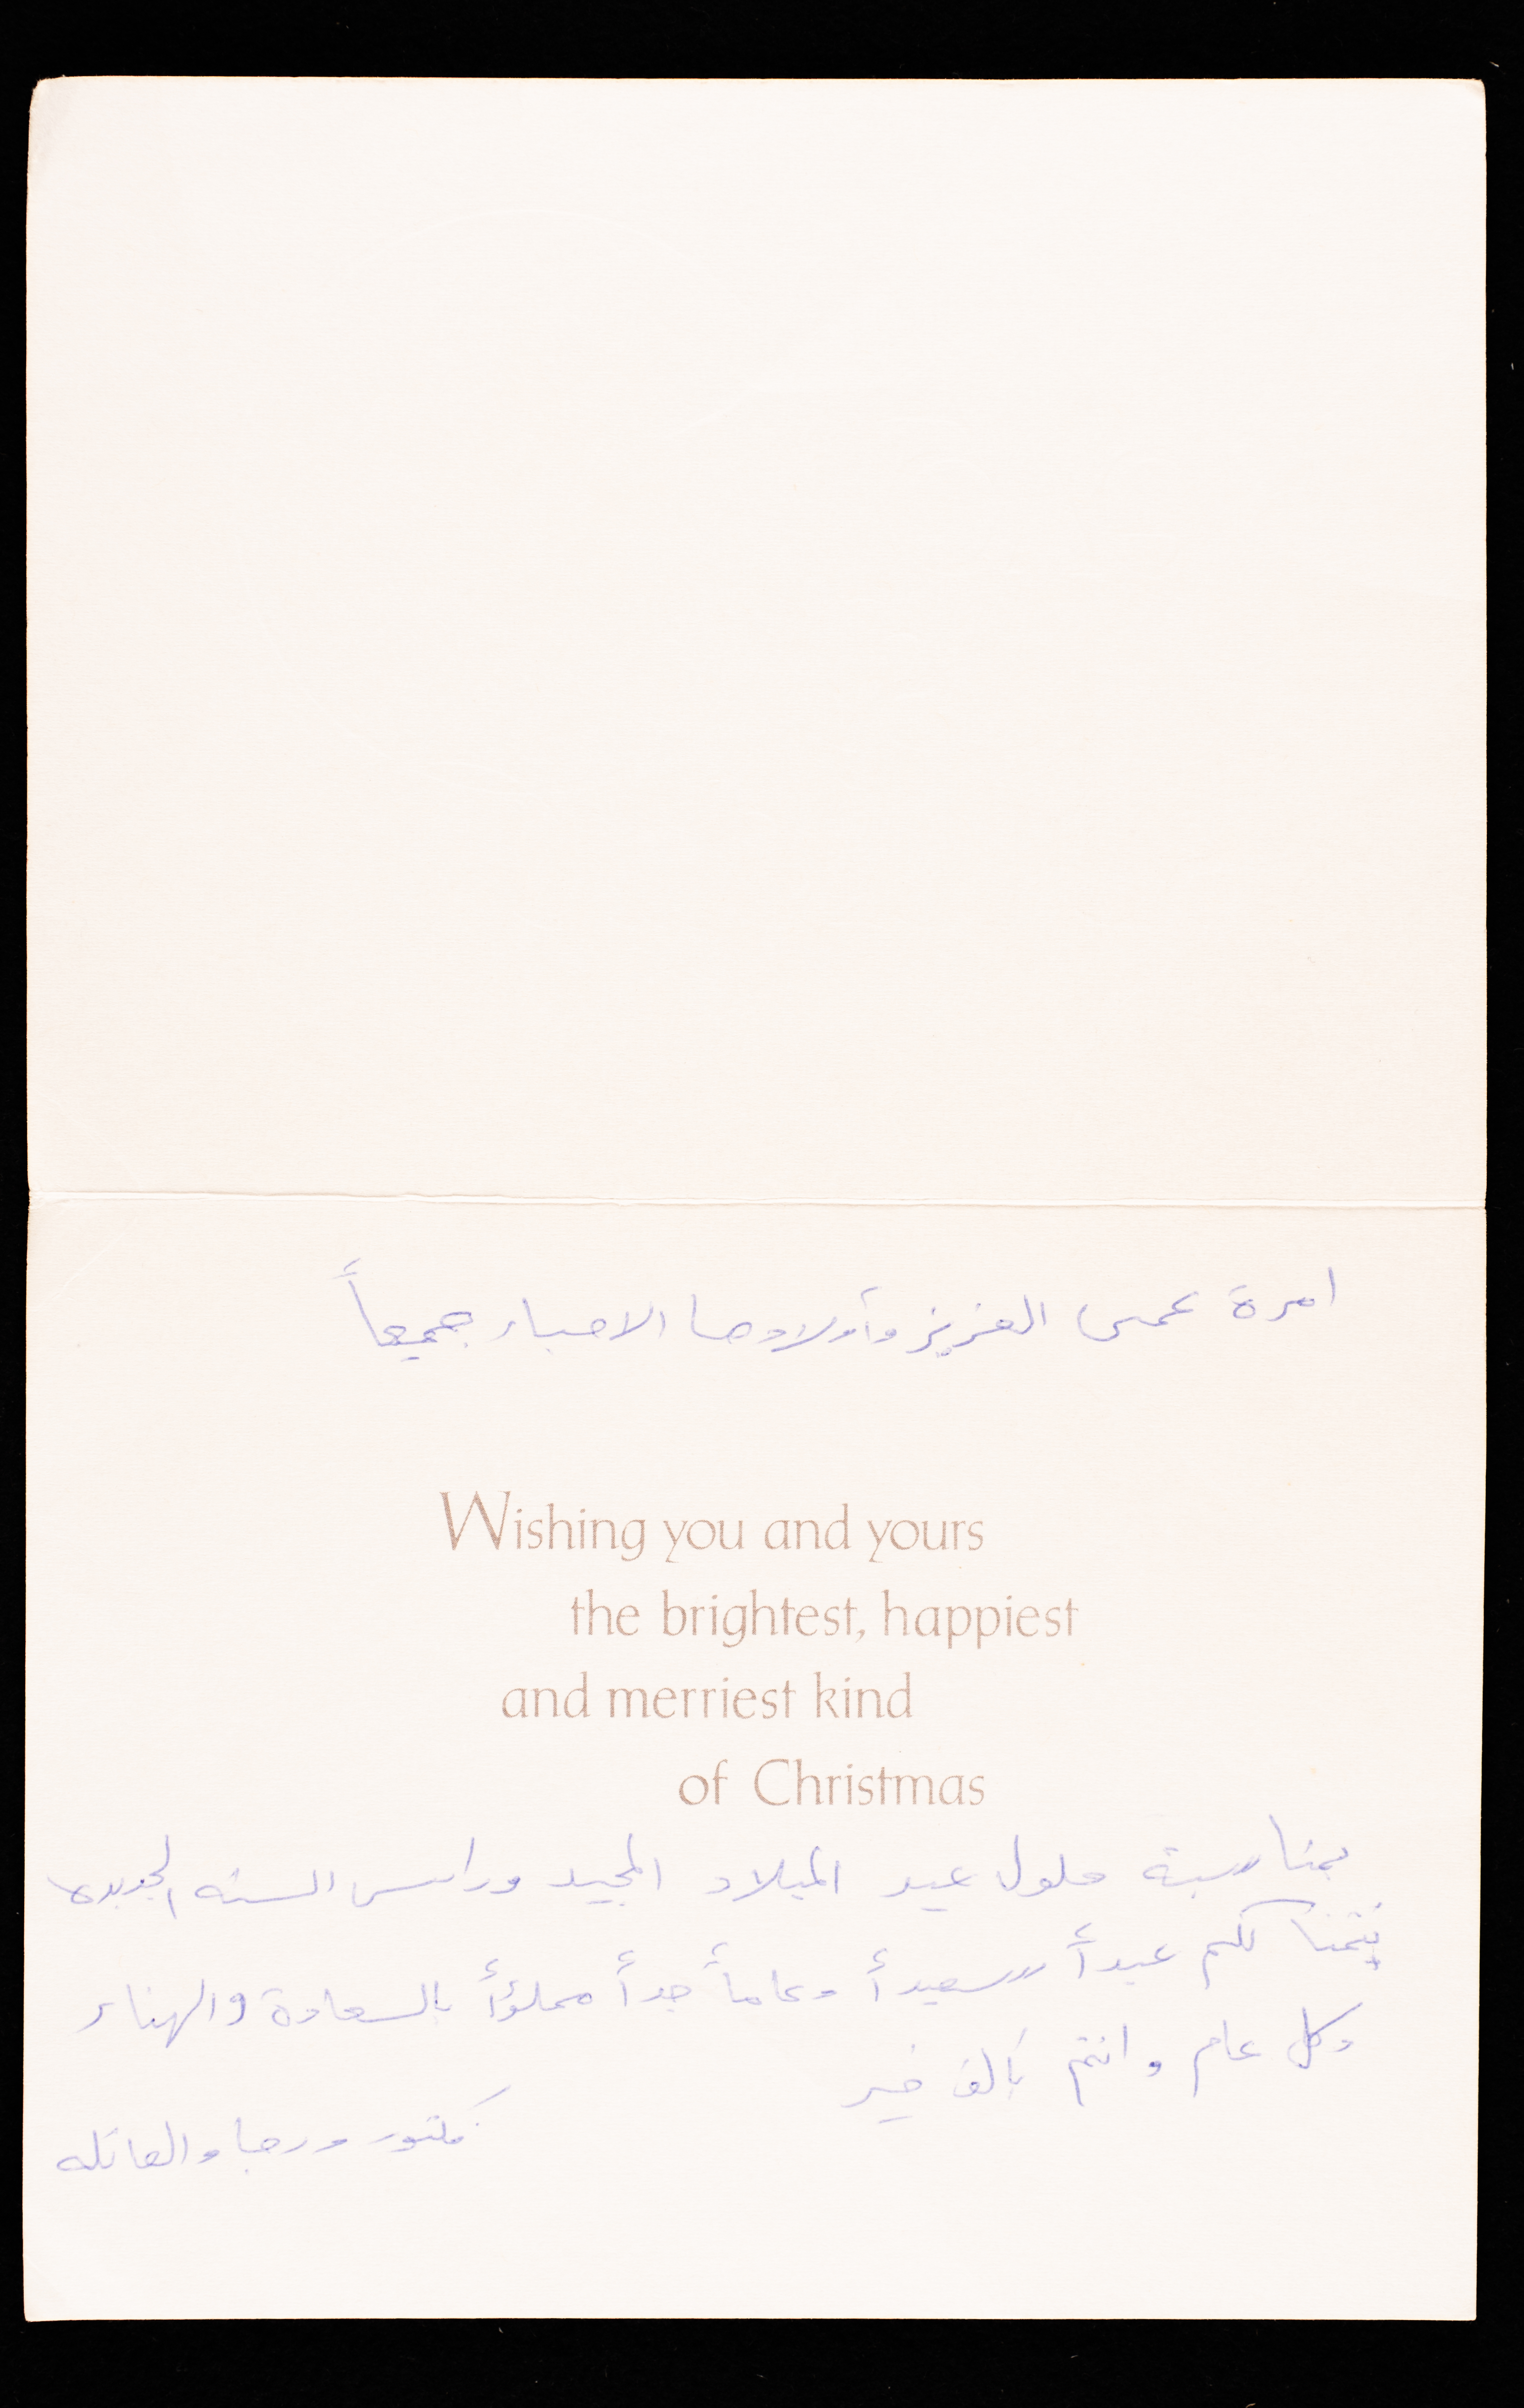 امرة عمي العزيز وأولادها الاحباء جميعاً
Wishing you and yours
the brightest, happiest
and merriest kind
of Christmas
بمناسبة حلول عيد الميلاد المجيد وراس السنه الجديده
نتمنا لكم عيداً سعيداً وعاماً جداً مملؤاً بالسعادة والهناء
وكل عام وانتم بالف خير
فكتور ورجا والعائله